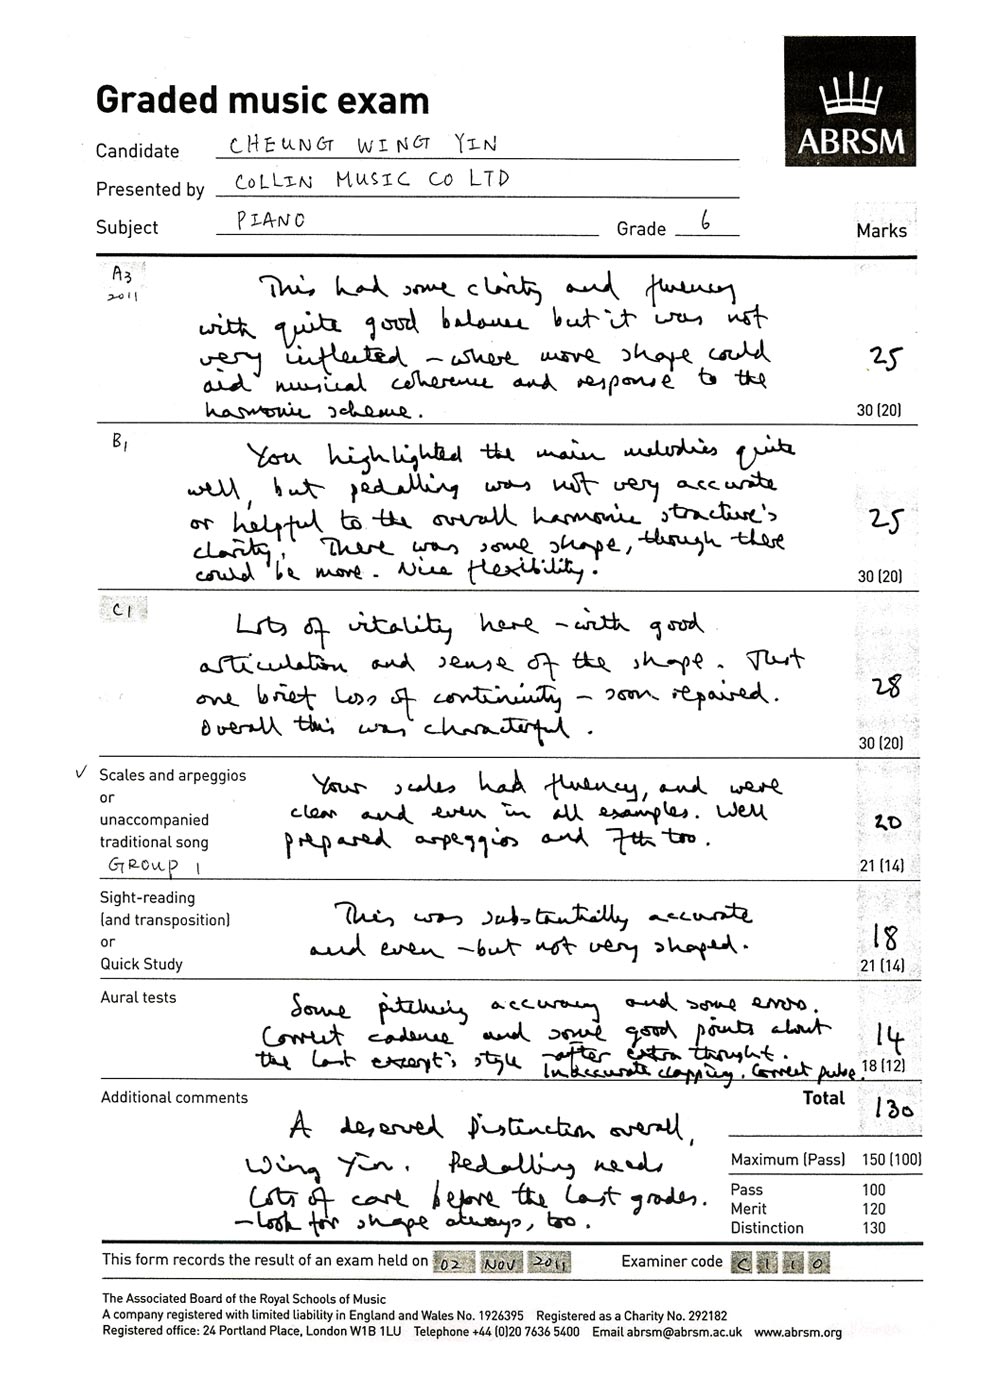 Graded music exam
ABRSM
Candidate CHEUNG WING YIN
Presented by COLLIN MUSIC CO LTD
Subject PIANO Grade 6 Marks
A3
2011
This had some clarity and fluency
with quite good balance but it was not
very inflected – where more shape could
aid musical coherence and response to the
harmonic scheme.
25
30 (20)
B1
You highlighted the main melodies quite
well, but pedalling was not very accurate
or helpful to the overall harmonic structure's
clarity. There was some shape, though there
could be more. Nice flexibility.
25
30 (20)
C1
Lots of vitality here – with good
articulation and sense of the shape. Just
one brief loss of continuity – soon repaired.
Overall this was characterful.
28
30 (20)
✓ Scales and arpeggios
or
unaccompanied
traditional song
GROUP 1
Your scales had fluency, and were
clear and even in all examples. Well
prepared arpeggios and 7th too.
20
21 (14)
Sight-reading
(and transposition)
or
Quick Study
This was substantially accurate
and even – but not very shaped.
18
21 (14)
Aural tests
Some pitching accuracy and some errors.
Correct cadence and some good points about
the last excerpt's style – after extra thought.
Inaccurate clapping. Correct pulse.
14
18 (12)
Additional comments
A deserved Distinction overall,
Wing Yin. Pedalling needs
lots of care before the last grades.
– look for shape always, too.
Total 130
Maximum (Pass) 150 (100)
Pass 100
Merit 120
Distinction 130
This form records the result of an exam held on 02 NOV 2011 Examiner code C 1 1 0
The Associated Board of the Royal Schools of Music
A company registered with limited liability in England and Wales No. 1926395 Registered as a Charity No. 292182
Registered office: 24 Portland Place, London W1B 1LU Telephone +44 (0)20 7636 5400 Email abrsm@abrsm.ac.uk www.abrsm.org